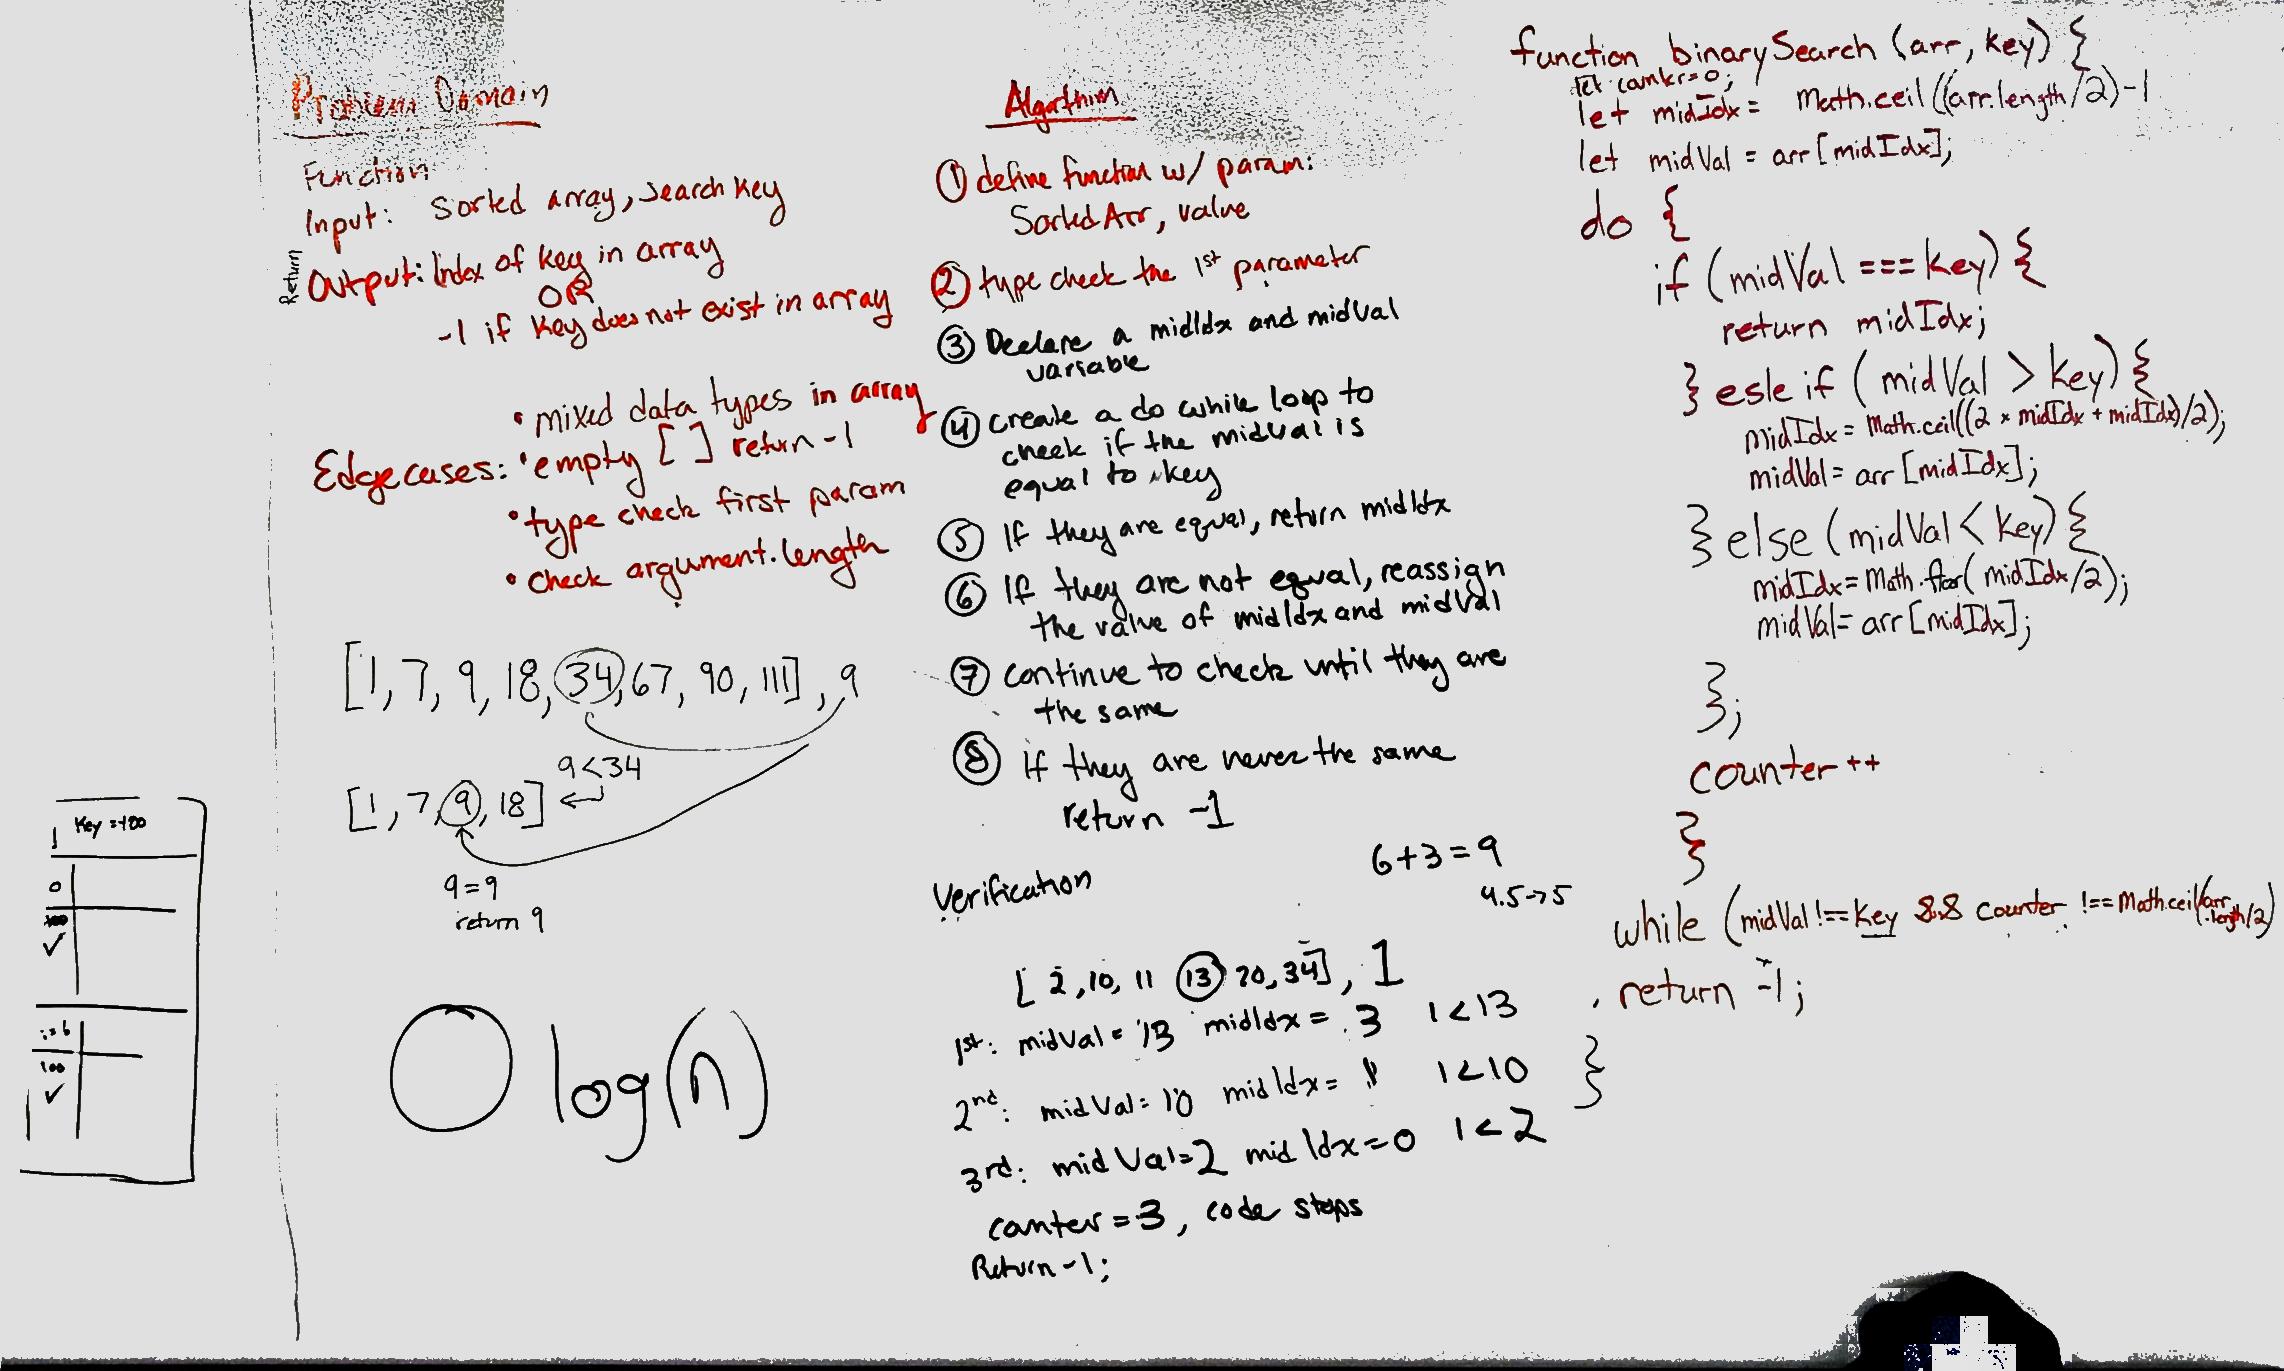 Problem Domain
Function
Input: Sorted array, Search key
Return
Output: Index of key in array
OR
-1 if key does not exist in array
• mixed data types in array
Edge cases: • empty [ ] return -1
• type check first param
• check argument.length
[1, 7, 9, 18, 34, 67, 90, 111], 9
9<34
[1, 7, 9, 18]
9=9
return 9
O log(n)
Key =100
0
100
✓
i=6
100
✓
Algorthim
① define function w/ param:
Sorted Arr, value
② type check the 1st parameter
③ Declare a midIdx and midVal
variable
④ create a do while loop to
check if the midval is
equal to key
⑤ If they are equal, return midIdx
⑥ If they are not equal, reassign
the value of midIdx and midVal
⑦ continue to check until they are
the same
⑧ if they are never the same
return -1
6+3=9
4.5→5
Verification
[2, 10, 11 13 20, 34], 1
1st: midVal = 13 midIdx = 3 1<13
2nd: midVal = 10 midIdx = 1 1<10
3rd: midVal=2 midIdx=0 1<2
counter = 3, code stops
Return -1;
function binarySearch (arr, key) {
let counter=0;
let midIdx = Math.ceil((arr.length/2)-1
let midVal = arr[midIdx];
do {
if (midVal === key) {
return midIdx;
} esle if (midVal > key) {
midIdx = Math.ceil((2 * midIdx + midIdx)/2);
midVal = arr[midIdx];
} else (midVal < key) {
midIdx = Math.floor(midIdx/2);
midVal = arr[midIdx];
};
counter++
}
while (midVal !== key && counter !== Math.ceil(arr
.length/2)
return -1;
}